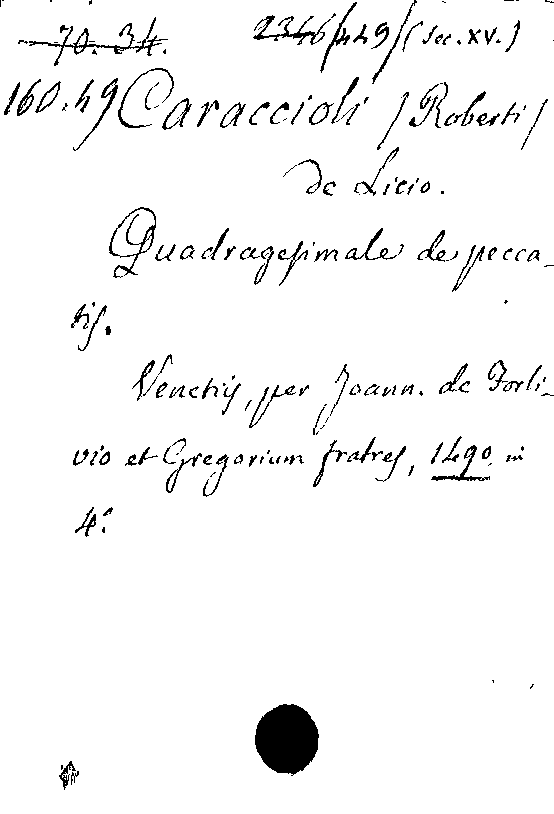 70. 34. 2346/449/(Sec. XV.)
160.49 Caraccioli /Roberti/
de Licio.
Quadragesimale de pecca-
tis.
Venetiis, per Joann. de Forli-
vio et Gregorium fratres, 1490. in
4°.